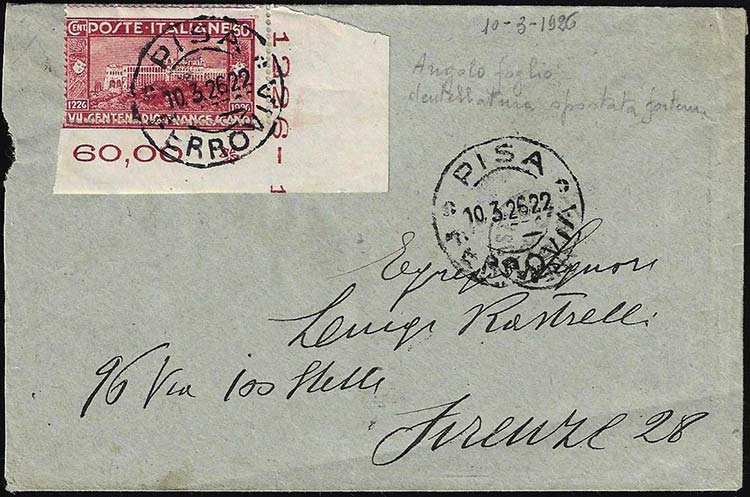 CENT. POSTE·ITALIANE 60
1226 1926
VII. CENTENARIO FRANCESCANO
60,00
1226-1
PISA
10.3.26.22
FERROVIA
10-3-1926
Angolo foglio
dentellatura spostata
PISA
10.3.26.22
FERROVIA
Egregio Signore
Luigi Rastrelli
96 Via
Firenze 28